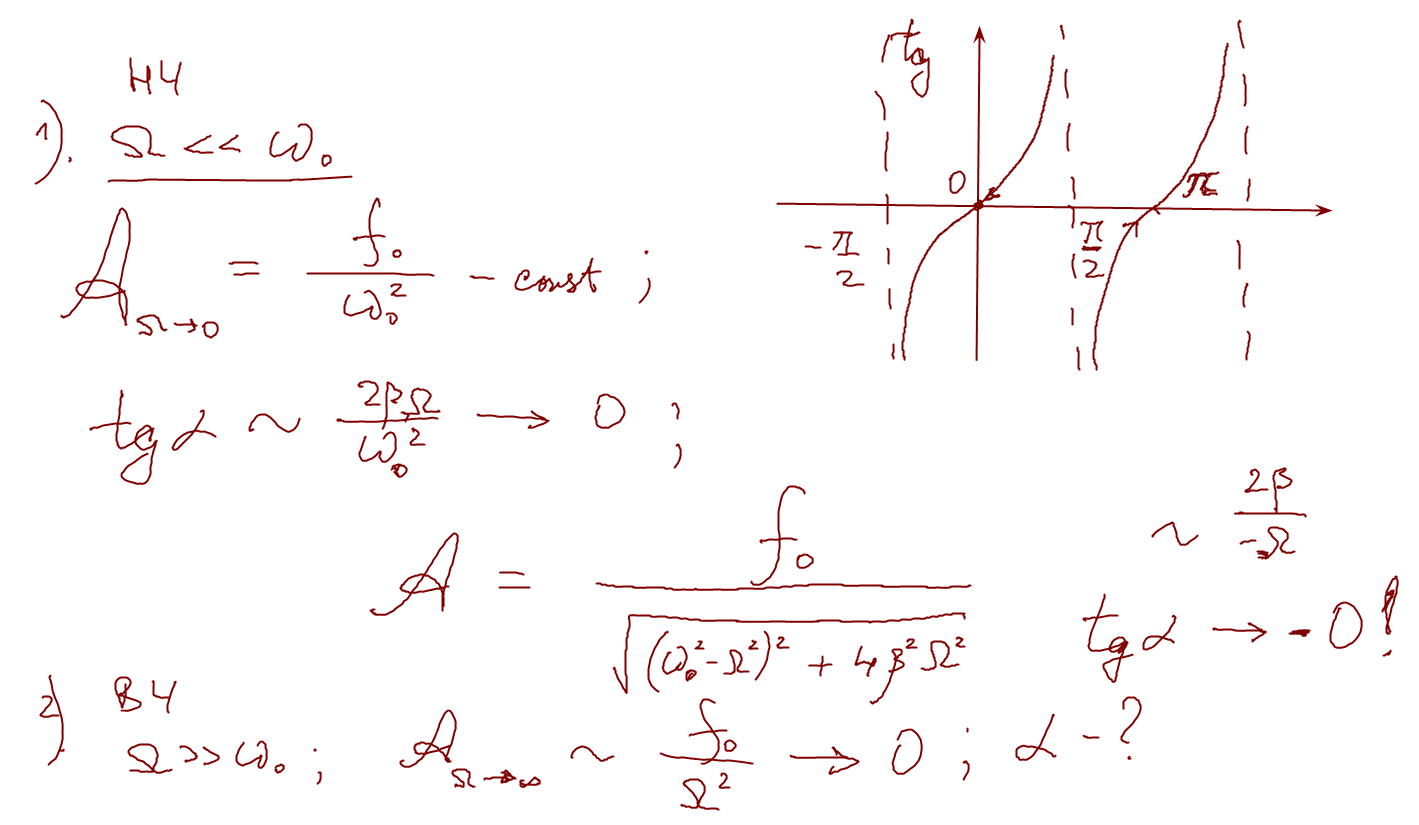 НЧ
1). Ω << ω₀
A_{Ω→0} = f₀ / ω₀² - const ;
tg α ~ 2βΩ / ω₀² → 0 ;
tg
0
π
-π/2
π/2
A = f₀ / √((ω₀² - Ω²)² + 4β²Ω²)
~ 2β / -Ω
tg α → -0!
2) ВЧ
Ω >> ω₀ ; A_{Ω→∞} ~ f₀ / Ω² → 0 ; α - ?